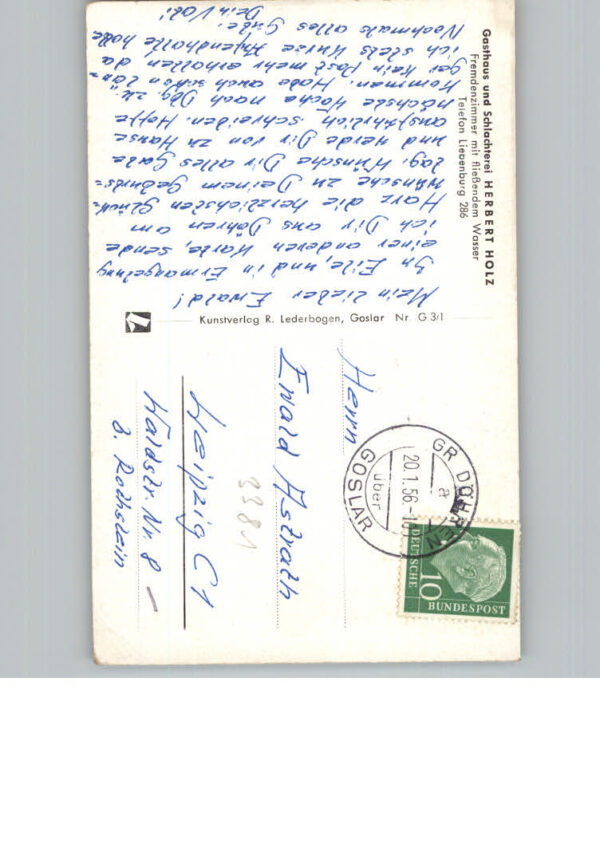 Gasthaus und Schlachterei HERBERT HOLZ
Fremdenzimmer mit fließendem Wasser
Telefon Liebenburg 286
Mein lieber Ewald!
In Eile, und in Ermangelung
einer anderen Karte, sende
ich Dir aus Döhren am
Harz die herzlichsten Glück-
wünsche zu Deinem Geburts-
tag. Wünsche Dir alles Gute
und werde Dir von zu Hause
ausführlich schreiben. Hoffe
nächste Woche nach Dbg. zu
kommen. Habe auch schon län-
ger kein Post mehr erhalten da
ich stets kurze Aufenthalte habe
Nochmals alles Gute!
Dein Vati
Kunstverlag R. Lederbogen, Goslar Nr. G 3/1
Herrn
Ewald Astrath
Leipzig C1
Waldstr. Nr. 8
b. Rothstein
3381
GR DÖHREN
a
20.1.56
über
GOSLAR
10
DEUTSCHE
BUNDESPOST